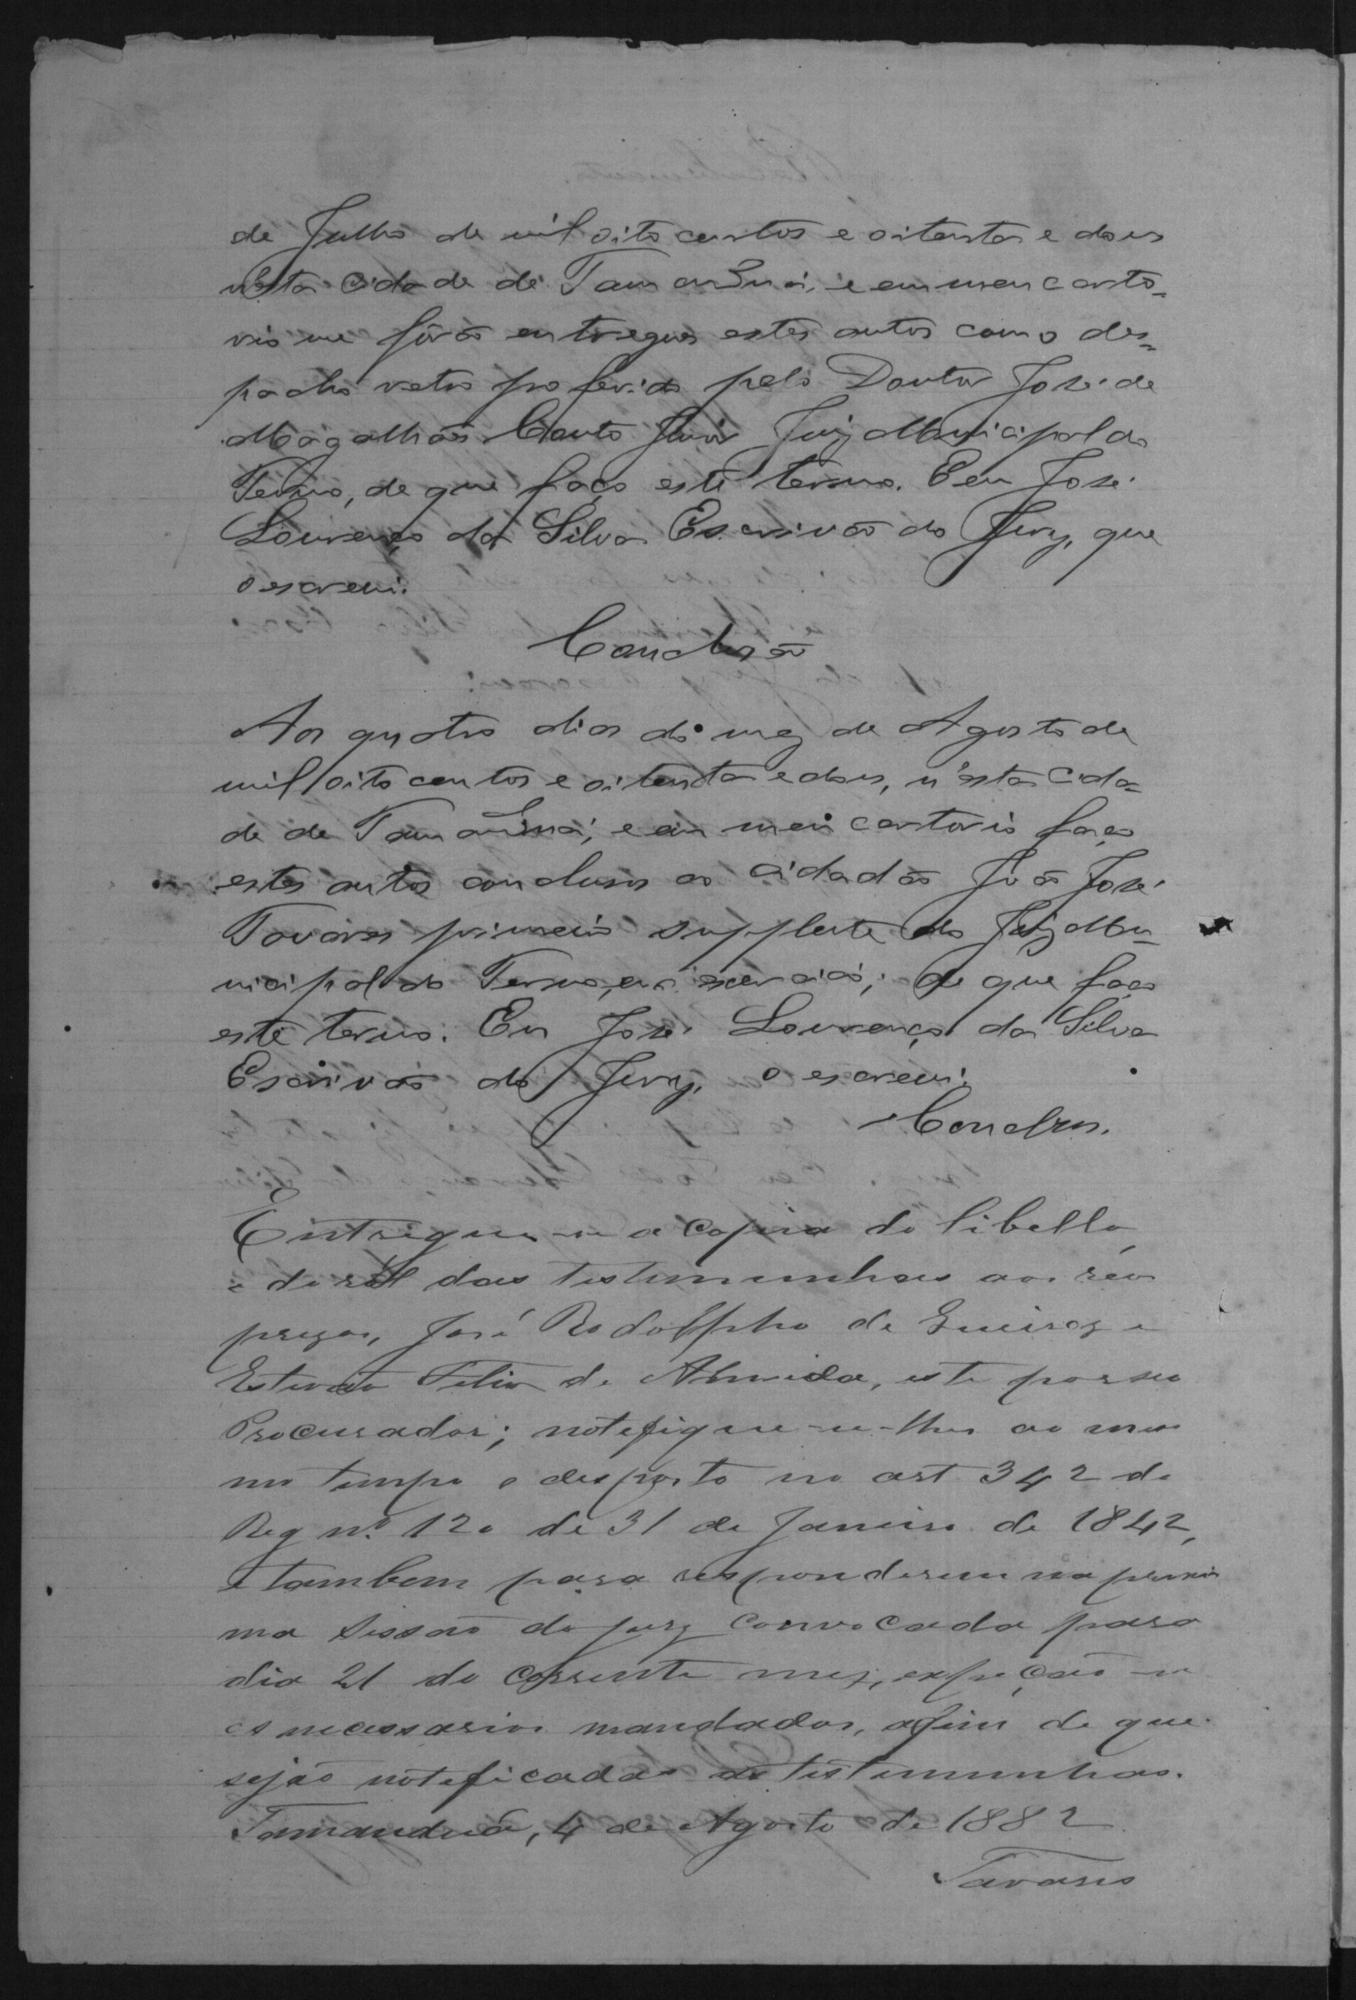 de Julho de mil oito centos e oitenta e dous
nesta cidade de Tamanduá, e em meu carto=
rio me fôrão entregues estes autos com o des=
pacho retro proferido pelo Doutor José de
Magalhães Couto Juiz Municipal do
Termo, de que faço este termo. Eeu José
Lourenço da Silva Escrivão do Jury, que
o escrevi.
Conclusão
Aos quatro dias do mez de Agosto de
mil oito centos e oitenta e dous, n'esta cida=
de de Tamanduá, e em meu cartorio faço
estes autos conclusos ao cidadão João José
Tavares primeiro supplente do Juiz Mu=
nicipal do Termo, em exercicio; de que faço
este termo. Eu José Lourenço da Silva
Escrivão do Jury, o escrevi.
Conclsos.
Entregue-se a copia do libello,
e do ról das testimunhas aos reos
prezos, José Rodolpho de Queiroz e
Estevão Felix de Almeida, este por seo
Procurador; notefique-se-lhes ao mes
mo tempo o desposto no art 342 do
Reg nº 120 de 31 de Janeiro de 1842,
e tambem para responderem na proxi
ma sessão do jury convocada para
dia 21 do corrente mez, expeção-se
os necessarios mandados, afim de que
sejão noteficadas as testimunhas.
Tamanduá, 4 de Agosto de 1882
Tavares